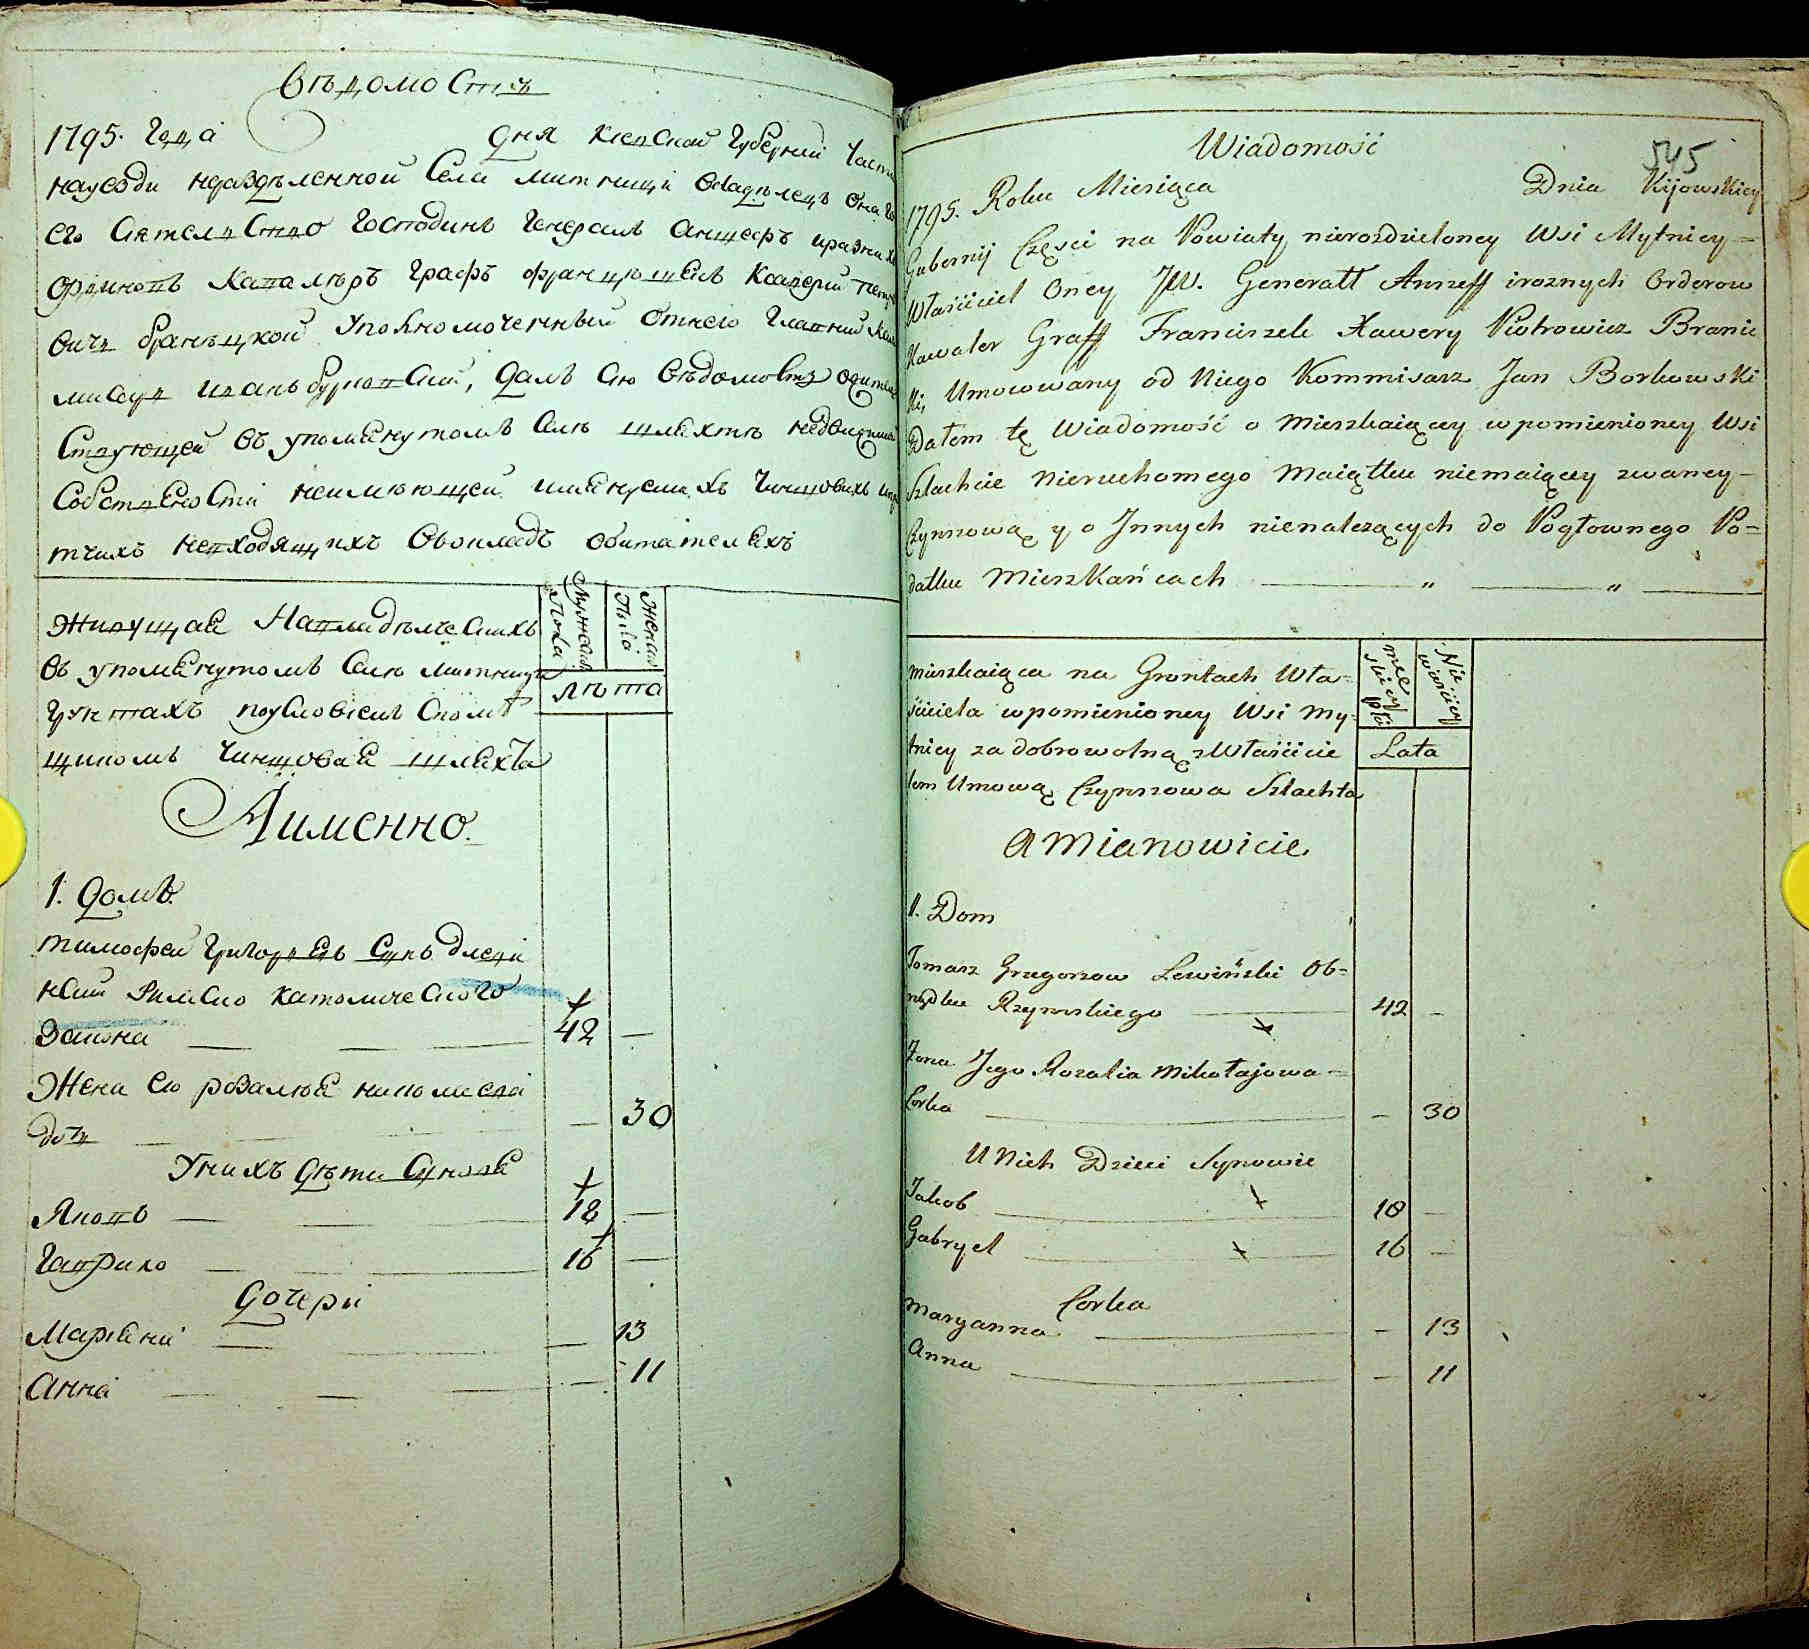 Вѣдомость
1795. Года дня Кіевской Губерніи Части
науезди нераздѣленной Села Митници Владѣлецъ Она го
его Сіятельство Господинъ Генералъ Аншефъ иразных
Орденовъ Кавалѣръ Графъ Францишекъ Ксаверій Петр
вичь Браницкой Уполномоченный Отнего Главний Ком
мисаръ Иванъ Бурковский, Далъ Сію Вѣдомость
Ствующей въ упомянутомъ Селе Шляхтѣ недвижимой
Собствености неимѣющей имянуемихъ Чиншовихъ и про
тчихъ невходящихъ Вокладъ Обитателяхъ
Живущая На Владѣлческихъ
въ упомянутомъ Селе Митници
Грунтахъ поусловіемъ Споме
щикомъ Чиншовая Шляхта
Мужеска Пола
Женска Пола
Лѣта
А именно.
1. Домъ.
Тимофей Григорьевъ Сынъ
нский Римско Католическаго
Закона — 42 —
Жена Его Розалия николаева
дочь — 30
У нихъ Дѣти Синовя
Яковъ — 18 —
Гаврило — 16 —
Дочери
Маряна — 13
Анна — 11
545
Wiadomość
1795. Roku Miesiąca Dnia Kijowskiey
Gubernij Części na Powiaty nierozdzieloney Wsi Mytnicy =
Właściciel Oney JW. Generall Anszeff iroznych Orderow
Kawaler Graff Franciszek Xawery Piotrowicz Branic
ki, Umocowany od Niego Kommisarz Jan Borkowski
Dałem tę Wiadomość o Mieszkaiącey w pomienioney Wsi
Szlachcie Nieruchomego Maiątku niemaiącey zwaney –
Czynszową y o Innych nienalezących do Pogłownego Po=
datku Mieszkańcach — „ — „ —
mieszkaiąca na Gruntach Wła=
ściciela w pomienioney Wsi My=
tnicy za dobrowolną z Właścicie
lem Umową Czynszowa Szlachta
męskiey płci
Niewieściey
Lata
A Mianowicie
1. Dom
Tomasz Grzegorzow Lewiński Ob=
rządku Rzymskiego — 42 –
Zona Jego Rozalia Mikołajowa =
Corka — – 30
U Nich Dzieci Synowie
Jakob — 18 –
Gabryel — 16 –
Corka
Maryanna — – 13
Anna — – 11